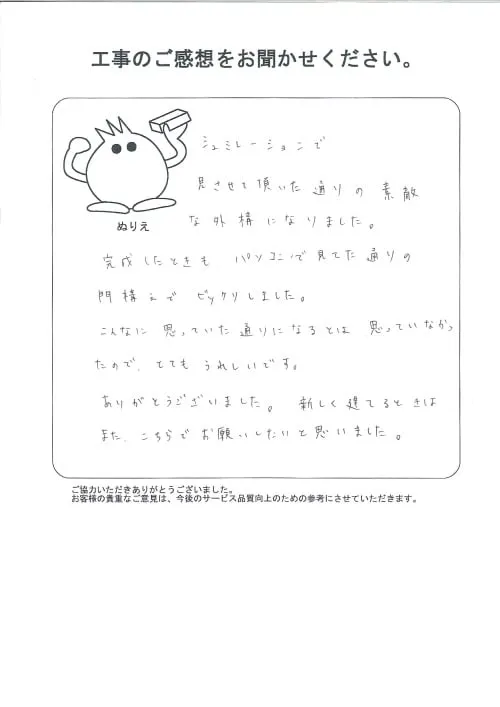 工事のご感想をお聞かせください。
シュミレーションで
見させて頂いた通りの素敵
な外構になりました。
ぬりえ
完成したときも パソコンで見てた通りの
門構えで ビックリしました。
こんなに思っていた通りになるとは思っていなかっ
たので、とてもうれしいです。
ありがとうございました。 新しく建てるときは
また、こちらでお願いしたいと思いました。
ご協力いただきありがとうございました。
お客様の貴重なご意見は、今後のサービス品質向上のための参考にさせていただきます。